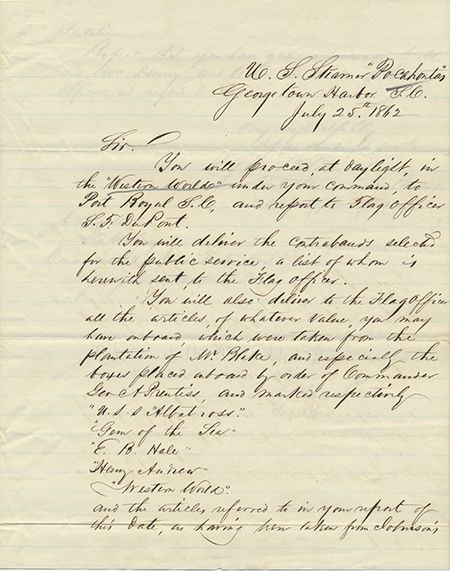 U. S. Steamer "Pocahontas"
Georgetown Harbor S.C.
July 25th 1862
Sir.
You will proceed, at daylight, in
the "Western World" under your command, to
Port Royal S.C, and report to Flag Officer
S. F. DuPont.
You will deliver the contrabands selected
for the public service, a list of whom is
herewith sent, to the Flag Officer.
You will also deliver to the Flag Officer
all the articles, of whatever value, you may
have onboard, which were taken from the
plantation of Mr Blake, and especially the
boxes placed onboard by order of Commander
Geo A Prentiss, and marked respectively
"U. S. S Albatross".
"Gem of the Sea"
"E. B. Hale"
"Henry Andrew"
"Western World".
and the articles referred to in your report of
this date, as having been taken from Johnson's